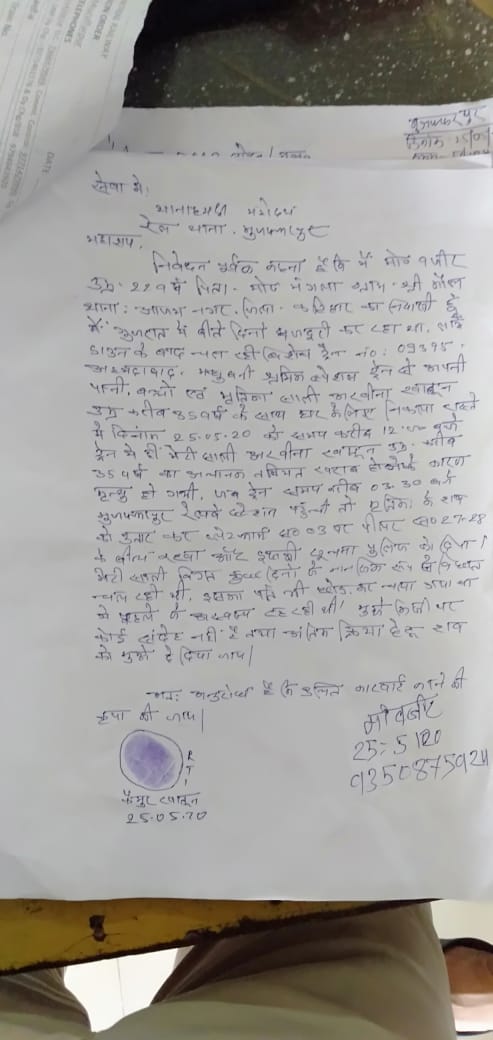 ORDER
TELEPHONES
DATE
मुजफ्फरपुर
दिनांक 15/0
सेवा में,
थानाध्यक्ष महोदय
रेल थाना, मुजफ्फरपुर
महाशय,
निवेदन पूर्वक कहना है कि मैं मो० वजीर
उम्र- 22 वर्ष पिता- मो०
थाना: आजम नगर, जिला- कटिहार का निवासी हूँ
मैं गुजरात में बीते दिनों मजदूरी कर रहा था, लॉक
डाउन के बाद चल रही विशेष ट्रेन नं०: 09395
अहमदाबाद- मधुबनी श्रमिक स्पेशल ट्रेन से अपनी
पत्नी, बच्चो एवं मृतिका साली अरवीना खातून
उम्र करीब 35 वर्ष के साथ घर के लिए निकला रास्ते
में दिनांक 25.05.20 को समय करीब 12:00 बजे
ट्रेन में हीं मेरी साली अरवीना खातून उम्र- करीब
35 वर्ष का अचानक तबियत खराब होने के कारण
मृत्यु हो गयी, जब ट्रेन समय करीब 03.30 बजे
मुजफ्फरपुर रेलवे स्टेशन पहुँची तो मृतिका के शव
को उतार कर प्लेटफार्म सं० 03 पर पीलर सं० 27-28
के बीच रखा और इसकी सूचना पुलिस को दिया।
मेरी साली विगत कुछ दिनों से मानसिक रूप से विक्षिप्त
चल रही थी, इसका पति भी छोड़ कर चला गया था
जो पहले से अस्वस्थ रह रही थी। मुझे किसी पर
कोई संदेह नहीं है तथा अंतिम क्रिया हेतु शव
को मुझे दे दिया जाए।
अतः अनुरोध है कि उचित कारवाई करने की
कृपा की जाए।
मो वजीर
25-5/20
9350875924
R
T
I
खातून
25.05.20